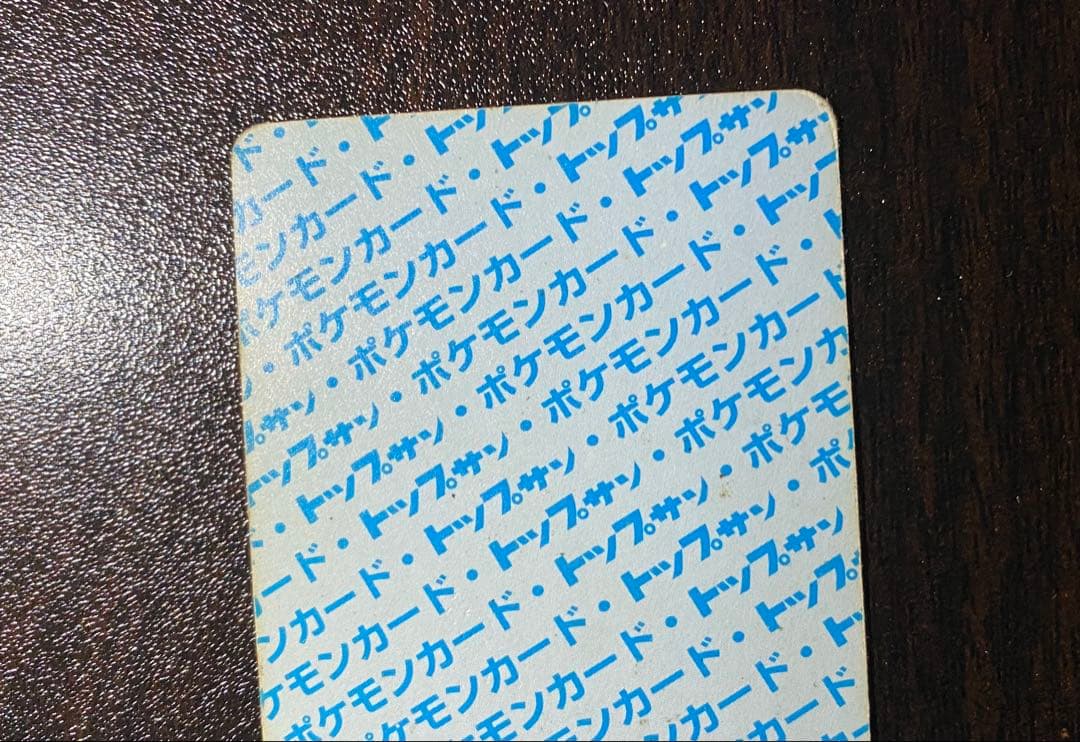 ド・
カード・ト
モンカード・トッ
ポケモンカード・トップ
ン・ポケモンカード・トップサ
プサン・ポケモンカード・トップサン
トップサン・ポケモンカード・トップサ
・トップサン・ポケモンカード・トッ
ード・トップサン・ポケモンカード・
ンカード・トップサン・ポケモンカード
ケモンカード・トップサン・ポケモンカ
ポケモンカード・トップサン・ポケモ
ケモンカード・トップサン・ポ
モンカード・トップサン
ンカード・トップ
カード・ト
ード